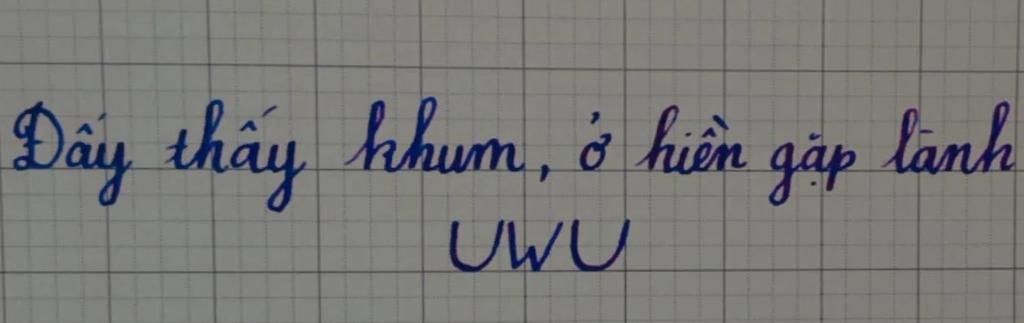 Đấy thấy khum, ở hiền gặp lành
UWU